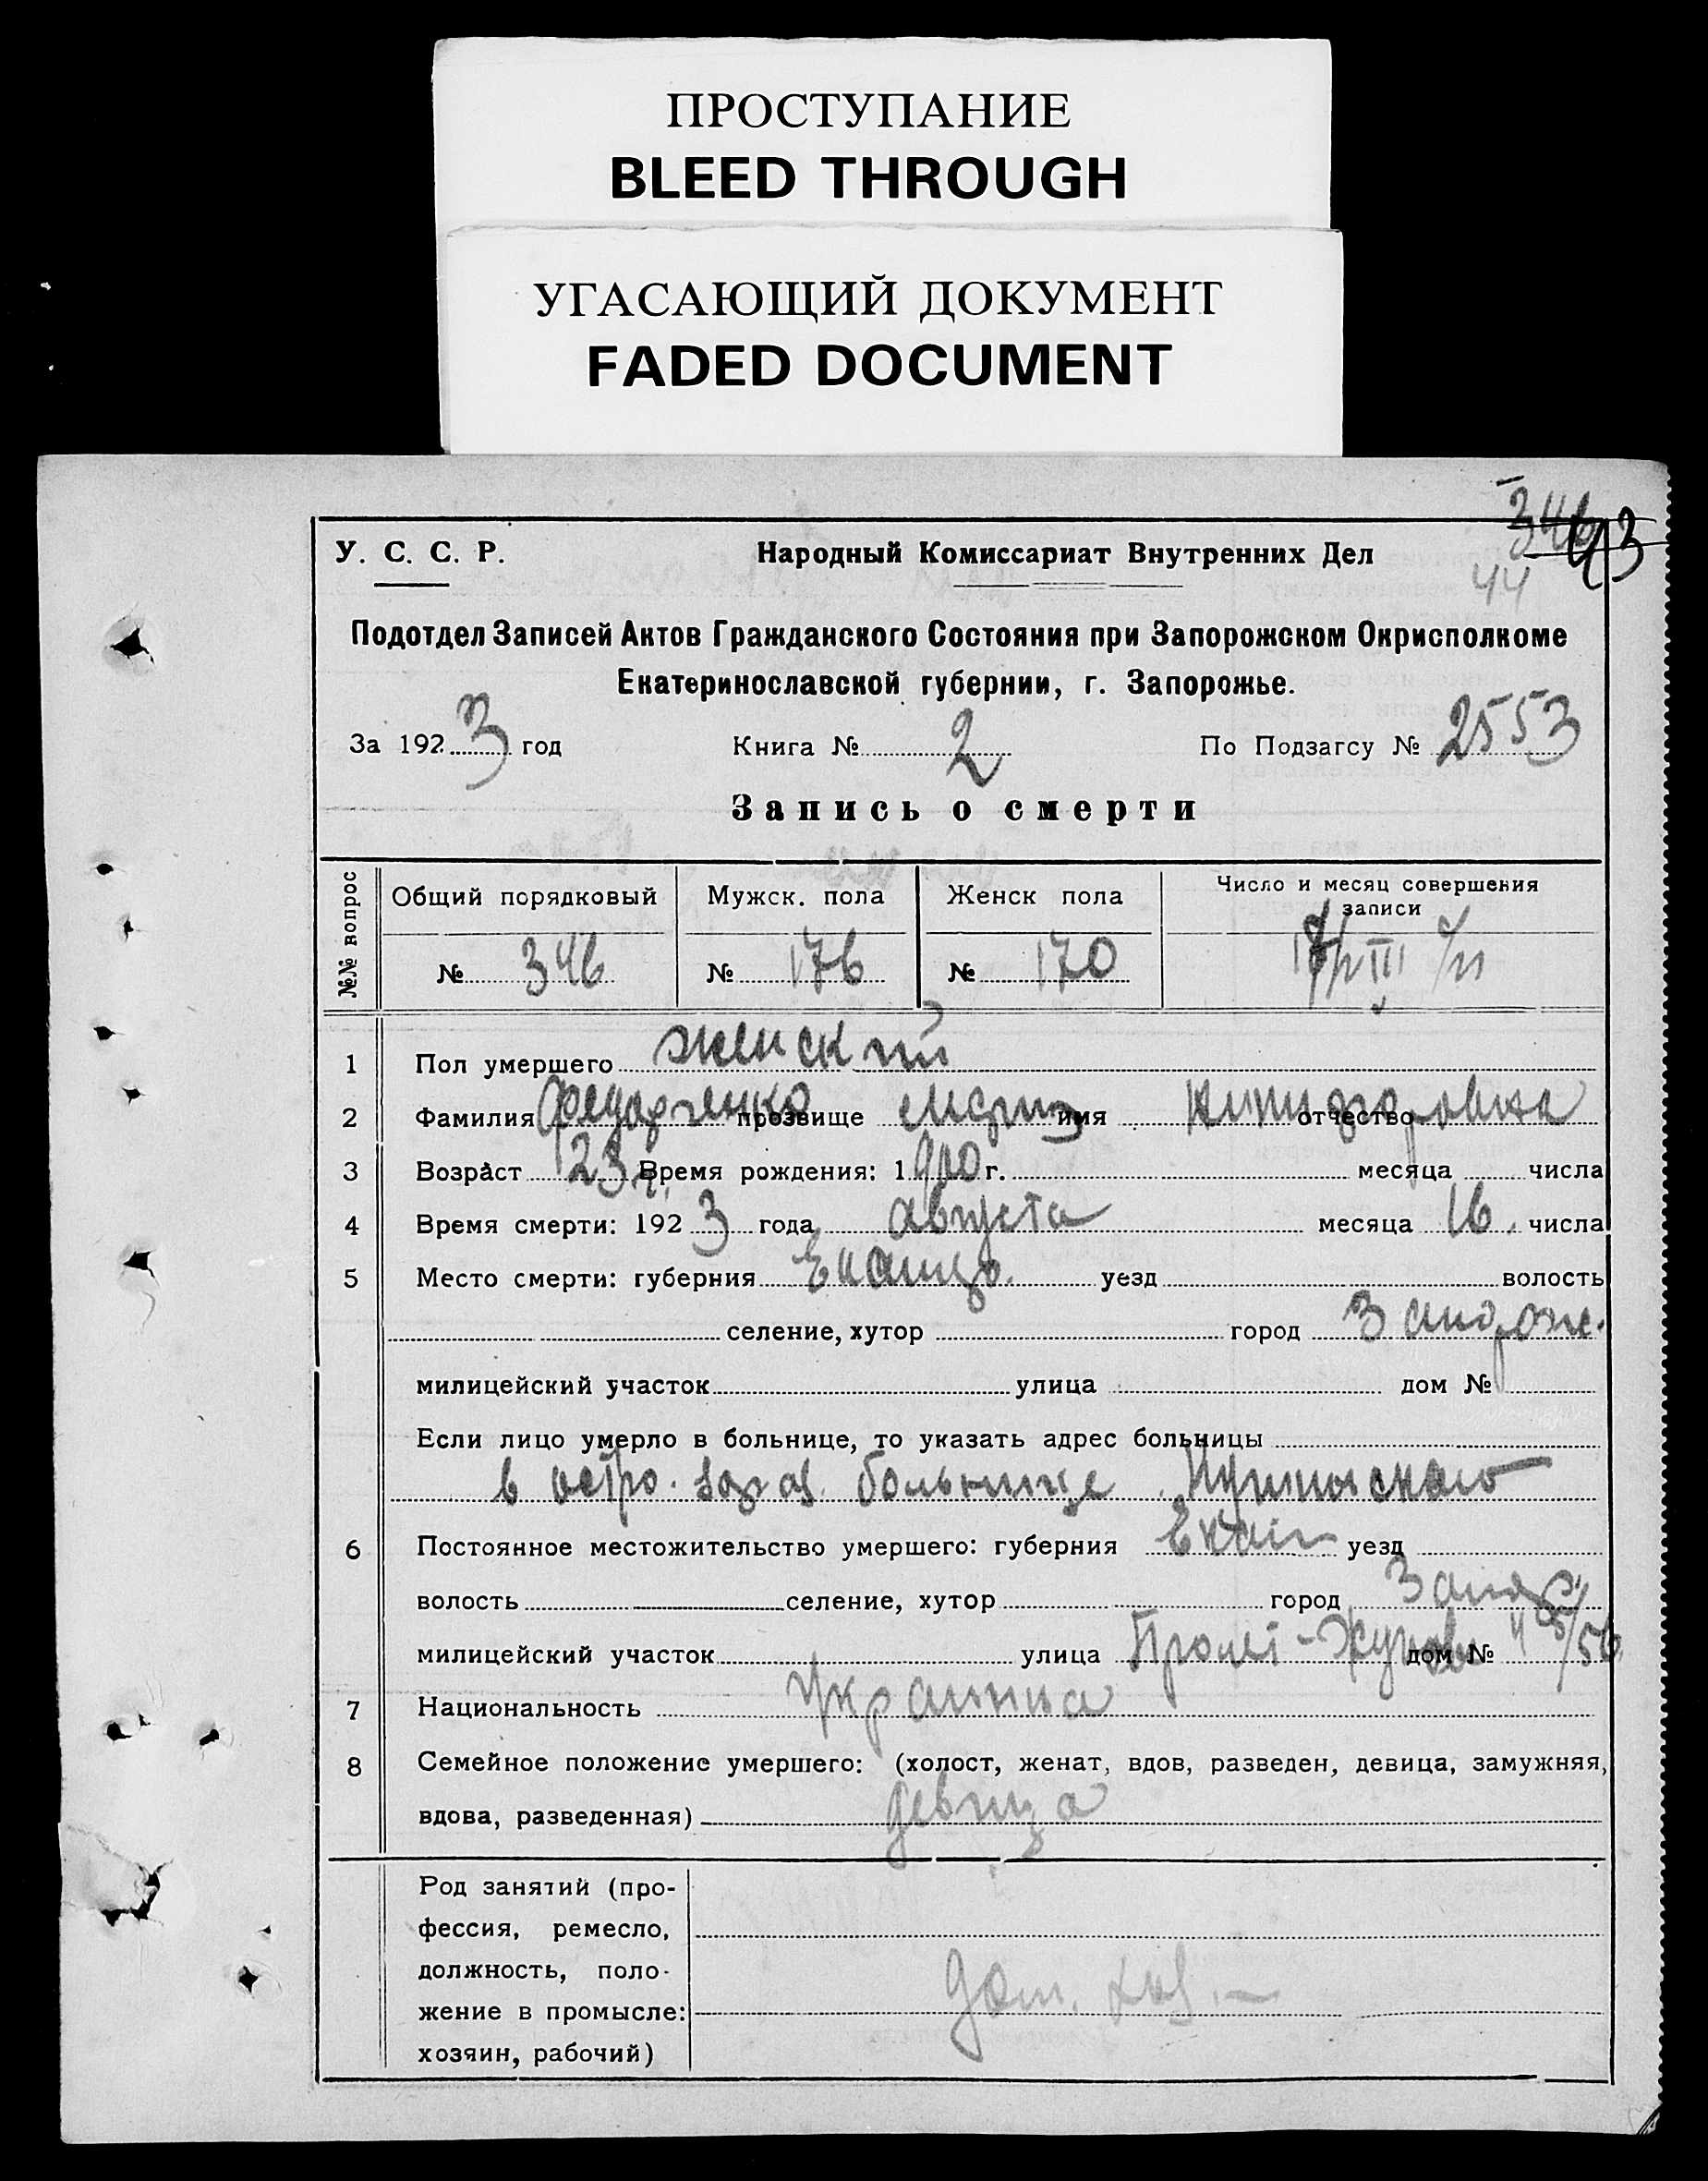 ПРОСТУПАНИЕ
BLEED THROUGH
УГАСАЮЩИЙ ДОКУМЕНТ
FADED DOCUMENT
346 93
44
У. С. С. Р. Народный Комиссариат Внутренних Дел
Подотдел Записей Актов Гражданского Состояния при Запорожском Окрисполкоме
Екатеринославской губернии, г. Запорожье.
За 1923 год Книга № 2 По Подзагсу № 2553
Запись о смерти
№№ вопрос Общий порядковый Мужск. пола Женск пола Число и месяц совершения
записи
№ 346 № 176 № 170
1 Пол умершего женский
2 Фамилия Федорченко прозвище Мария имя отчество
3 Возраст 23 г. Время рождения: 1900 г. месяца числа
4 Время смерти: 1923 года августа месяца 16 числа
5 Место смерти: губерния уезд волость
селение, хутор город Запорож.
милицейский участок улица дом №
Если лицо умерло в больнице, то указать адрес больницы
в остро. зараз. больнице
6 Постоянное местожительство умершего: губерния Екат уезд
волость селение, хутор город Запор.
милицейский участок улица дом №
7 Национальность Украинка
8 Семейное положение умершего: (холост, женат, вдов, разведен, девица, замужняя,
вдова, разведенная) девица
Род занятий (про-
фессия, ремесло,
должность, поло-
жение в промысле: дом. хоз.
хозяин, рабочий)